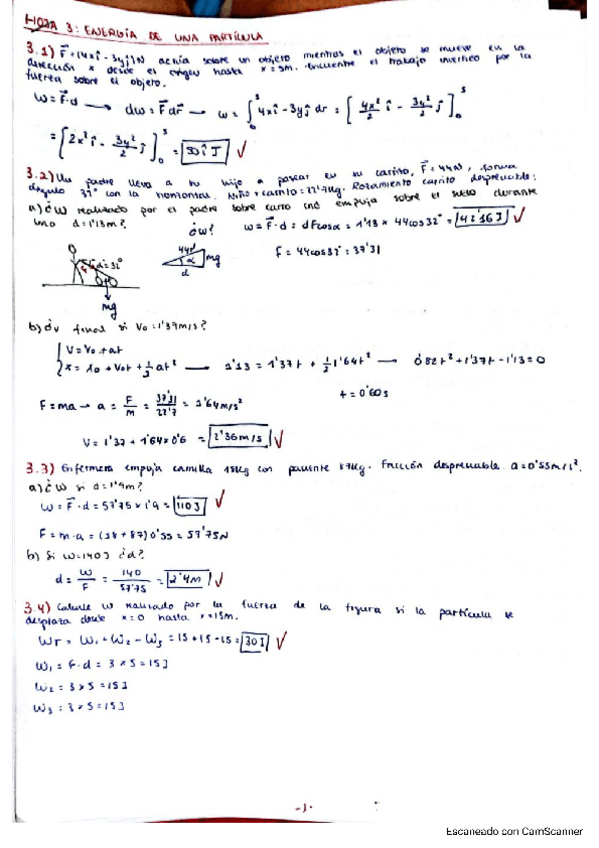 HOJA 3: ENERGÍA DE UNA PARTÍCULA
3.1) F⃗ = (4xî - 3yĵ)N actúa sobre un objeto mientras el objeto se mueve en la
dirección x desde el origen hasta x = 5m. Encuentre el trabajo invertido por la
fuerza sobre el objeto.
W = F⃗·d → dw = F⃗ dr⃗ → w = ∫₀⁵ 4xî - 3yĵ dr = [4x²/2 î - 3y²/2 ĵ]₀⁵
= [2x² î - 3y²/2 ĵ]₀⁵ = 50î J ✓
3.2) Un padre lleva a su hijo a pasear en su carrito, F⃗ = 44N, forma
ángulo 32° con la horizontal. Niño + carrito = 22'7Kg. Rozamiento carrito despreciable.
a) ¿W realizado por el padre sobre carro empuja sobre el suelo durante
d = 1'13m? ¿W? W = F⃗·d = dFcosα = 1'13 × 44cos32° = 42'16J ✓
F = 44cos32° = 37'31
44N α mg
d
α = 32°
mg
b) ¿v final si V₀ = 1'37m/s?
{ V = V₀ + at
x = x₀ + V₀t + 1/2 at² → 1'13 = 1'37t + 1/2 1'64t² → 0'82t² + 1'37t - 1'13 = 0
F = ma → a = F/m = 37'31/22'7 = 1'64m/s² t = 0'60s
V = 1'37 + 1'64×0'6 = 2'36m/s ✓
3.3) Enfermera empuja camilla 18Kg con paciente 87Kg. Fricción despreciable. a = 0'55m/s².
a) ¿W si d = 1'9m?
W = F⃗·d = 57'75 × 1'9 = 110J ✓
F = m·a = (18 + 87) 0'55 = 57'75N
b) Si W = 140J ¿d?
d = W/F = 140/57'75 = 2'4m ✓
3.4) Calcule W realizado por la fuerza de la figura si la partícula se
desplaza desde x = 0 hasta x = 15m.
Wr = W₁ + W₂ - W₃ = 15 + 15 - 15 = 30J ✓
W₁ = F·d = 3 × 5 = 15J
W₂ = 3 × 5 = 15J
W₃ = 3 × 5 = 15J
-1-
Escaneado con CamScanner